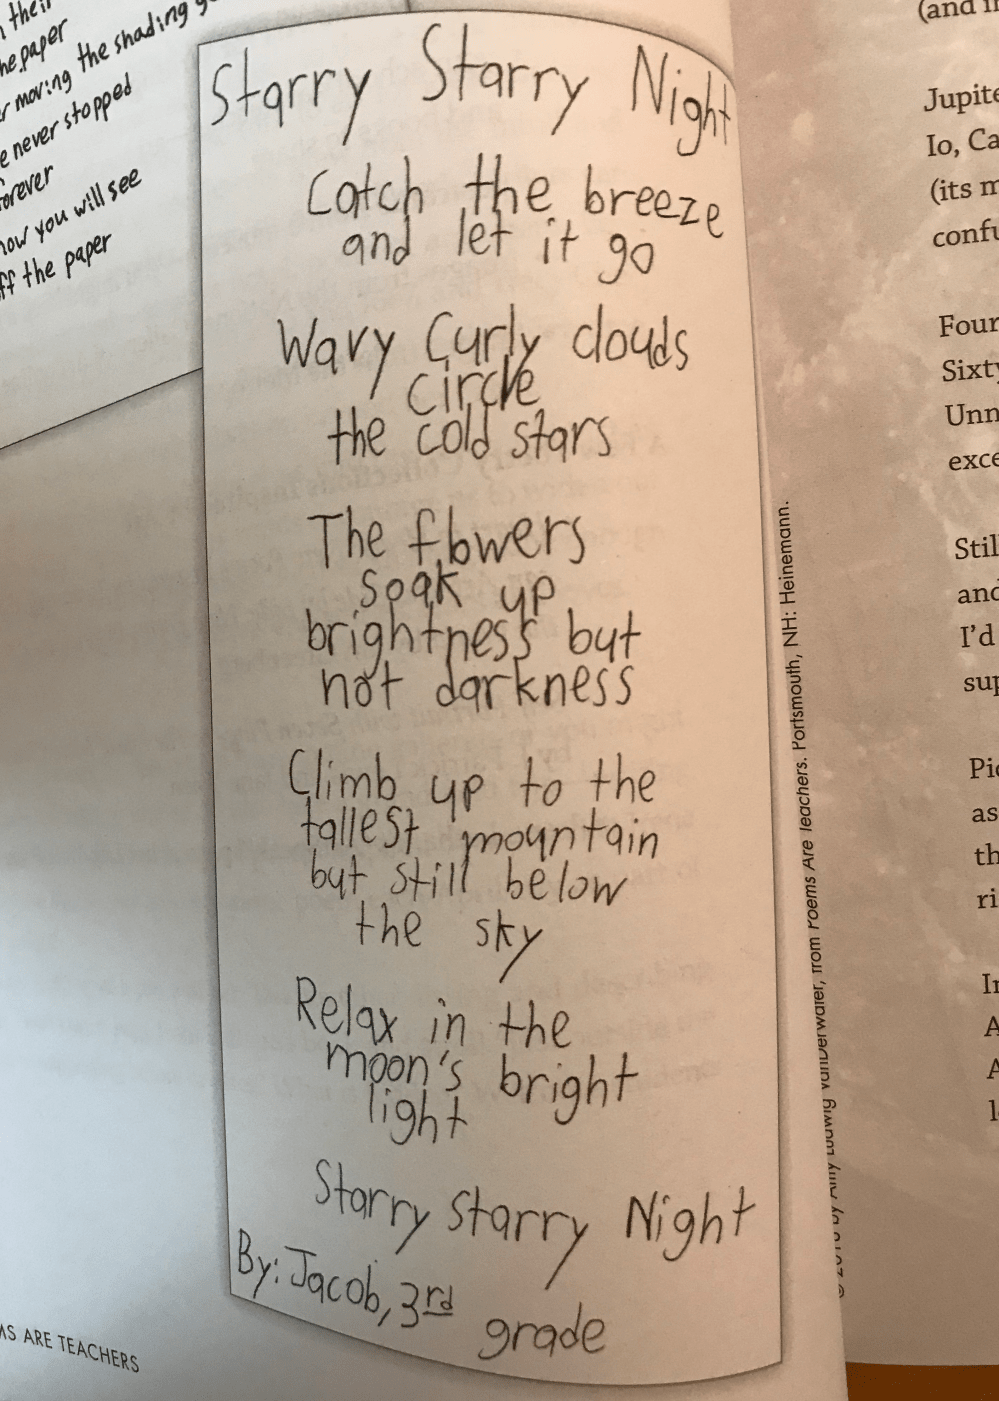 their
the paper
moving the shading
never stopped
forever
now you will see
off the paper
Starry Starry Night
Catch the breeze
and let it go
Wavy Curly clouds
circle
the cold stars
The flowers
soak up
brightness but
not darkness
Climb up to the
tallest mountain
but still below
the sky
Relax in the
moon's bright
light
Starry Starry Night
By: Jacob, 3rd
grade
ARE TEACHERS
© by Amy Ludwig VanDerwater, from Poems Are Teachers. Portsmouth, NH: Heinemann.
(and
Jupite
Io, Ca
(its m
confu
Four
Sixty
Unn
exce
Still
and
I'd
sup
Pic
as
th
ri
In
A
A